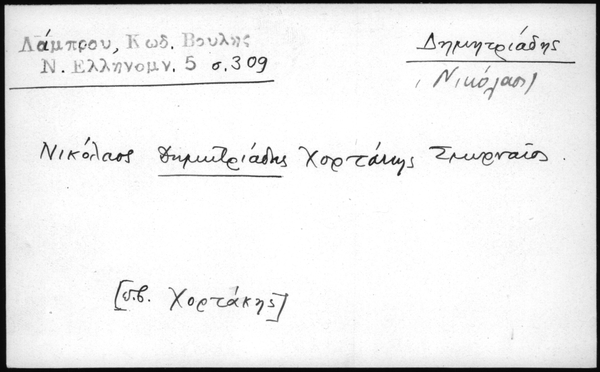 Λάμπρου, Κωδ. Βουλής
Ν. Ελληνομν. 5 σ. 309
Δημητριάδης
(Νικόλαος)
Νικόλαος Δημητριάδης Χορτάκης Σμυρναῖος.
[σ.β. Χορτάκης]